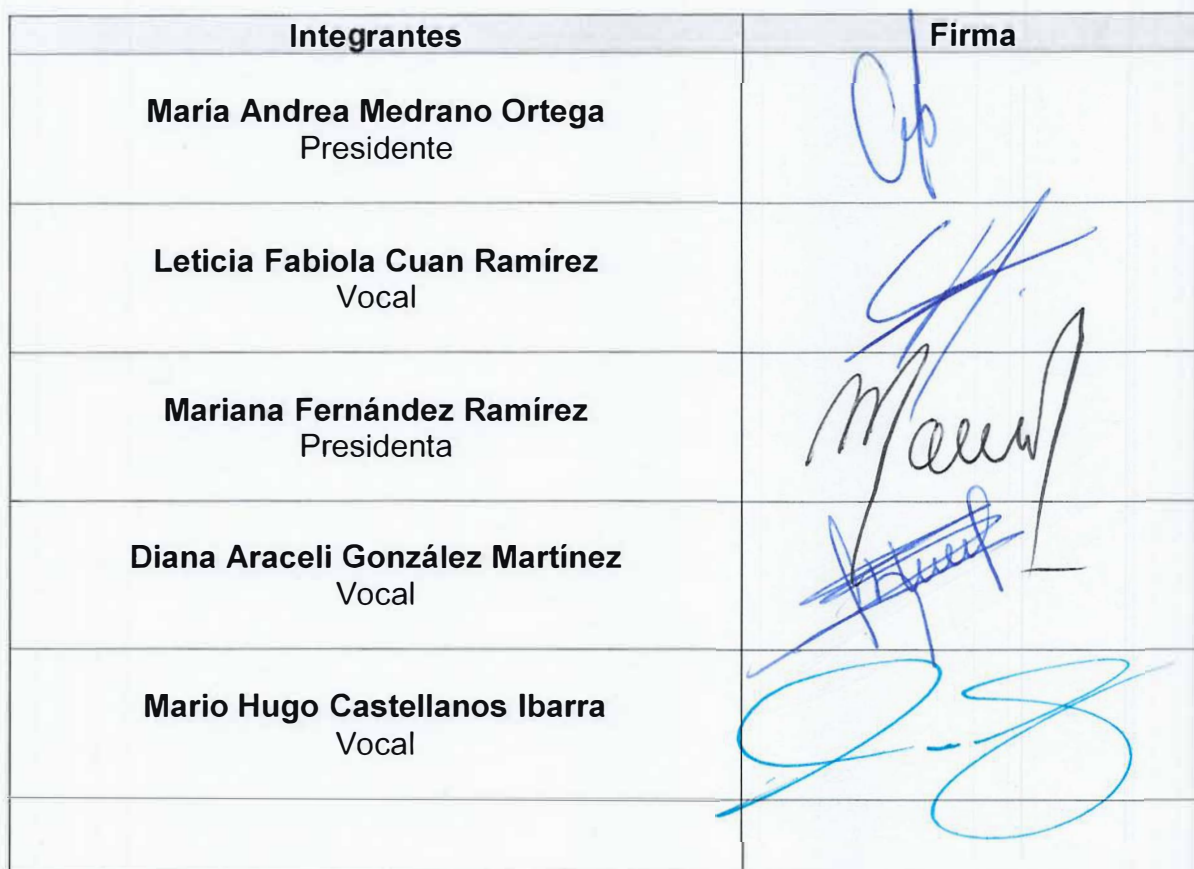 Integrantes Firma
María Andrea Medrano Ortega
Presidente
Leticia Fabiola Cuan Ramírez
Vocal
Mariana Fernández Ramírez
Presidenta
Diana Araceli González Martínez
Vocal
Mario Hugo Castellanos Ibarra
Vocal